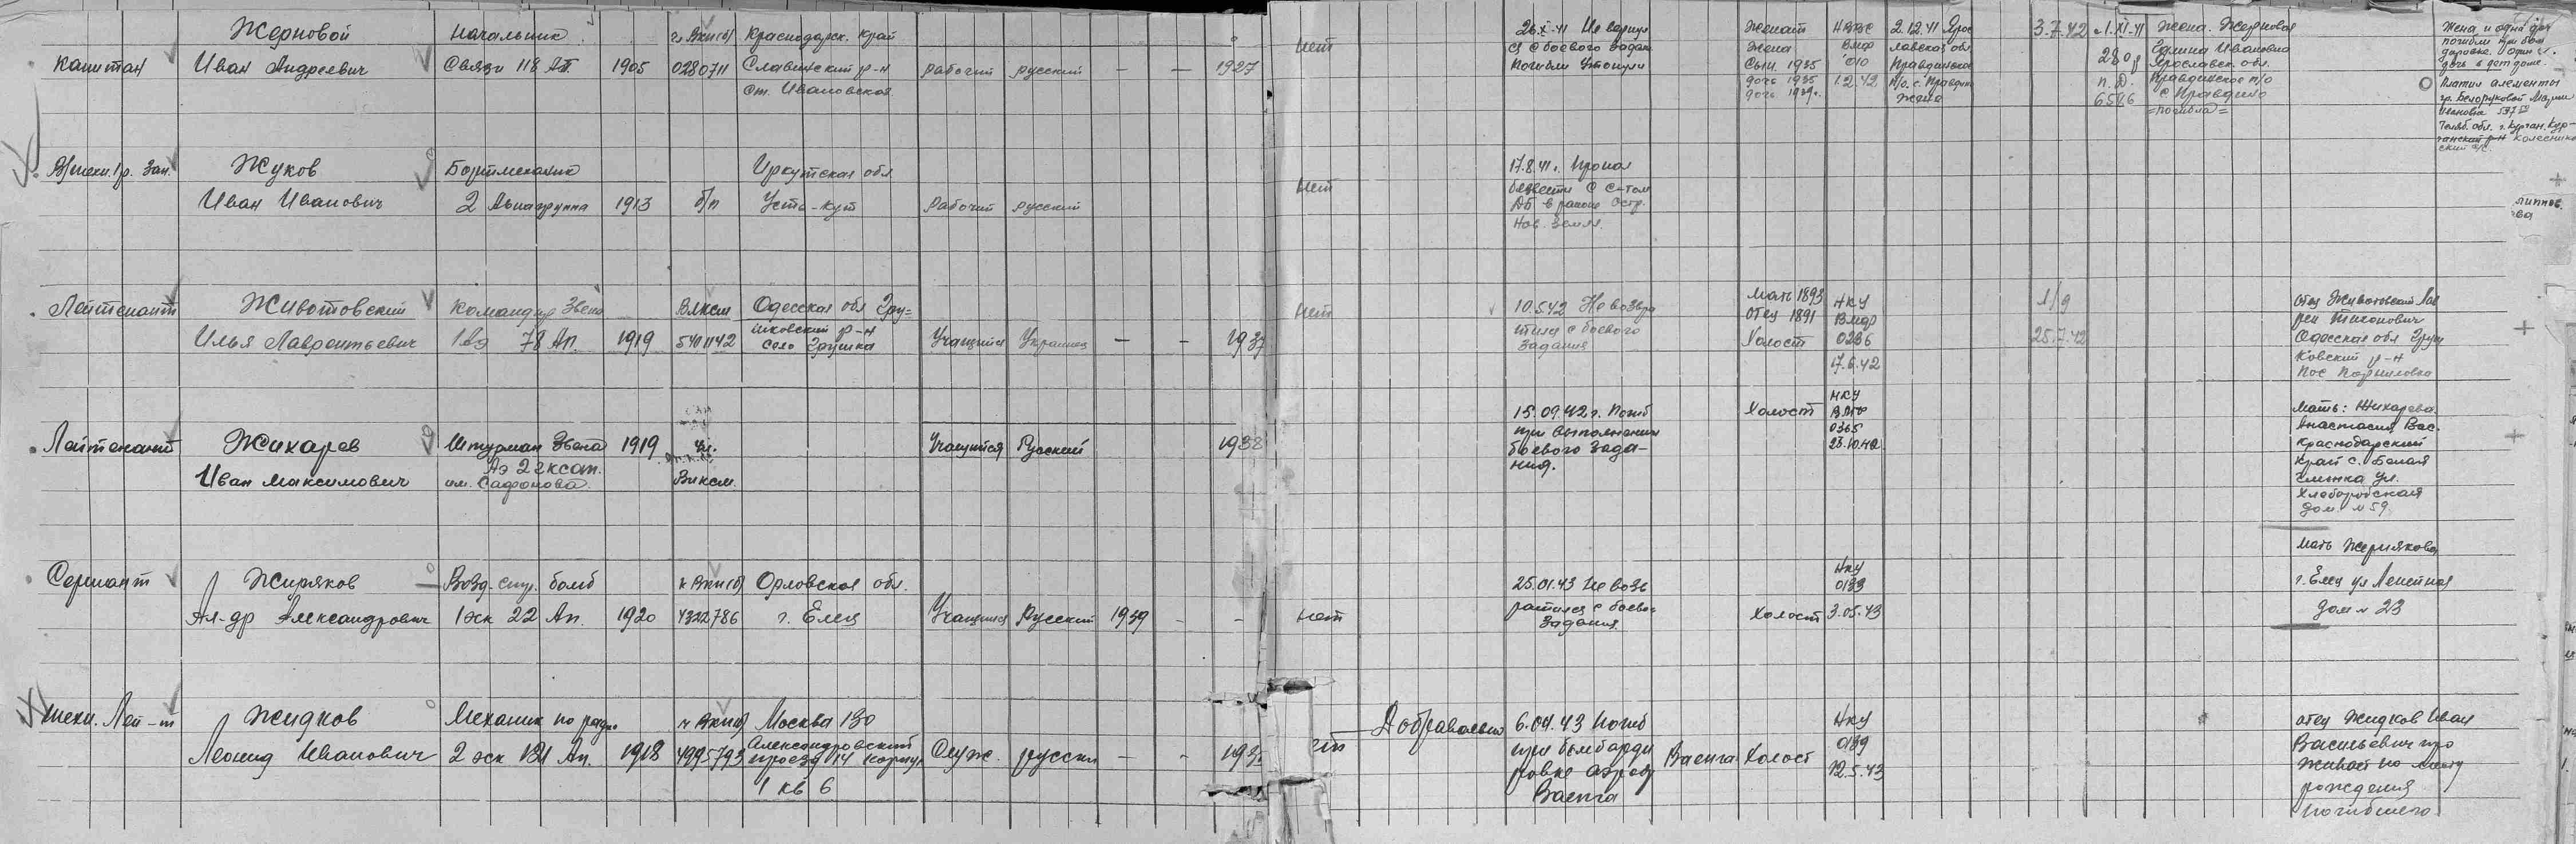 Капитан
Жерновой
Иван Андреевич
Начальник
Связи 118 АП.
1905
чл ВКП(б)
0280711
Краснодарск. Край
Славянский р-н
ст. Ивановская
рабочий
русский
—
—
1927
нет
26.X-41 Не вернул
ся с боевого задан
Погибли утонули
Женат
Жена
Сын 1935
дочь 1935
дочь 1939г.
ВМФ
010
1.2.42
2.12.41 Ярос
лавская обл
Правдинское
п/о. с. Правдино
жена
3.7.42
с 1.XI-41
280р
п.д.
6596
Жена. Жерновая
Ивановна
Ярославск. обл.
Правдинское п/о
с Правдино
=погибла=
Жена и одна дочь
погибли при бом
дочь в дет доме.
Платил алементы
гр. Белоруковой Марии
Ивановне
Челяб. обл. г. Курган. Кур-
ганский р-н Колесников
ский с/с.
В/техн. 1 р. Зап.
Жуков
Иван Иванович
Бортмеханик
2 Авиагруппа
1913
б/п
Иркутская обл
Усть-Кут
рабочий
русский
нет
17.8.41г. Пропал
безвести с с-том
в районе Остр.
Нов. Земля.
Лейтенант
Животовский
Илья Лаврентьевич
Командир Звена
1 Аэ 78 Ап.
1919
ВЛКСМ
5401142
Одесская обл Гру=
шковский р-н
село Грушка
Учащийся
Украинец
—
—
1937
нет
10.5.42 Не возвра
тился с боевого
задания
Мать 1893
Отец 1891
Холост
НКУ
ВМФ
0236
17.6.42
1/9
25.7.42
Отец Животовский Лав
рен Тихонович
Одесская обл Груш
ковский р-н
Лейтенант
Жихарев
Иван Максимович
Штурман Звена
Аэ 2 гксап.
им. Сафонова.
1919
ВЛКСМ.
Учащийся
Русский
1938
15.09.42 г. Погиб
при выполнении
боевого зада-
ния.
Холост
НКУ
ВМФ
0365
23.10.42
Мать: Жихарева
Анастасия Вас.
Краснодарский
край с. Белая
Глинка ул.
Хлеборобская
дом. № 59
Сержант
Жиряков
Ал-др Александрович
Возд. стр. бомб
1 эск 22 Ап.
1920
к ВКП(б)
4322786
Орловская обл.
г. Елец
Учащийся
Русский
1939
-
-
нет
25.01.43 Не возв
ратился с боево
задания
Холост
НКУ
0133
3.05.43
Мать Жерякова
г. Елец ул
дом № 23
техн. Лей-т
Жидков
Леонид Иванович
Механик по радио
2 эск 121 Ап.
1918
ч ВКП(б)
4995793
Москва 130
Александровский
проезд 14 корпус
1 кв 6
Служ.
русский
—
-
нет
Добравольно
6.04.43 Погиб
при бомбарди
ровке аэродр
Ваенга
Ваенга
Холост
НКУ
0139
12.5.43
отец Жидков Иван
Васильевич про
живает по месту
рождения
погибшего